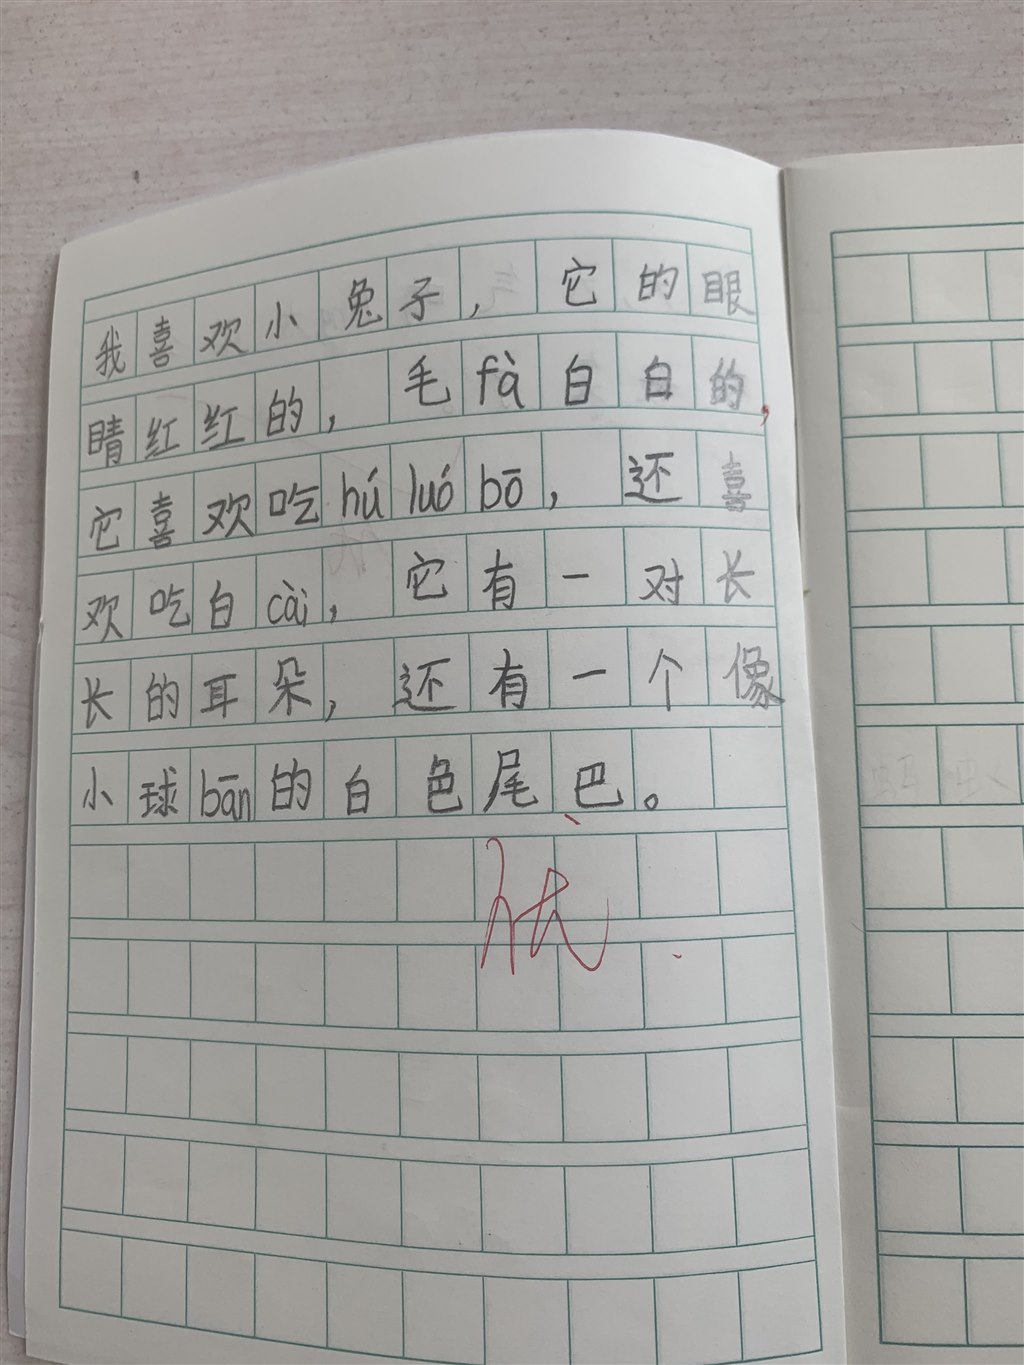 我喜欢小兔子，它的眼
睛红红的，毛fà白白的，
它喜欢吃hú luó bō，还喜
欢吃白cài，它有一对长
长的耳朵，还有一个像
小球bān的白色尾巴。
优